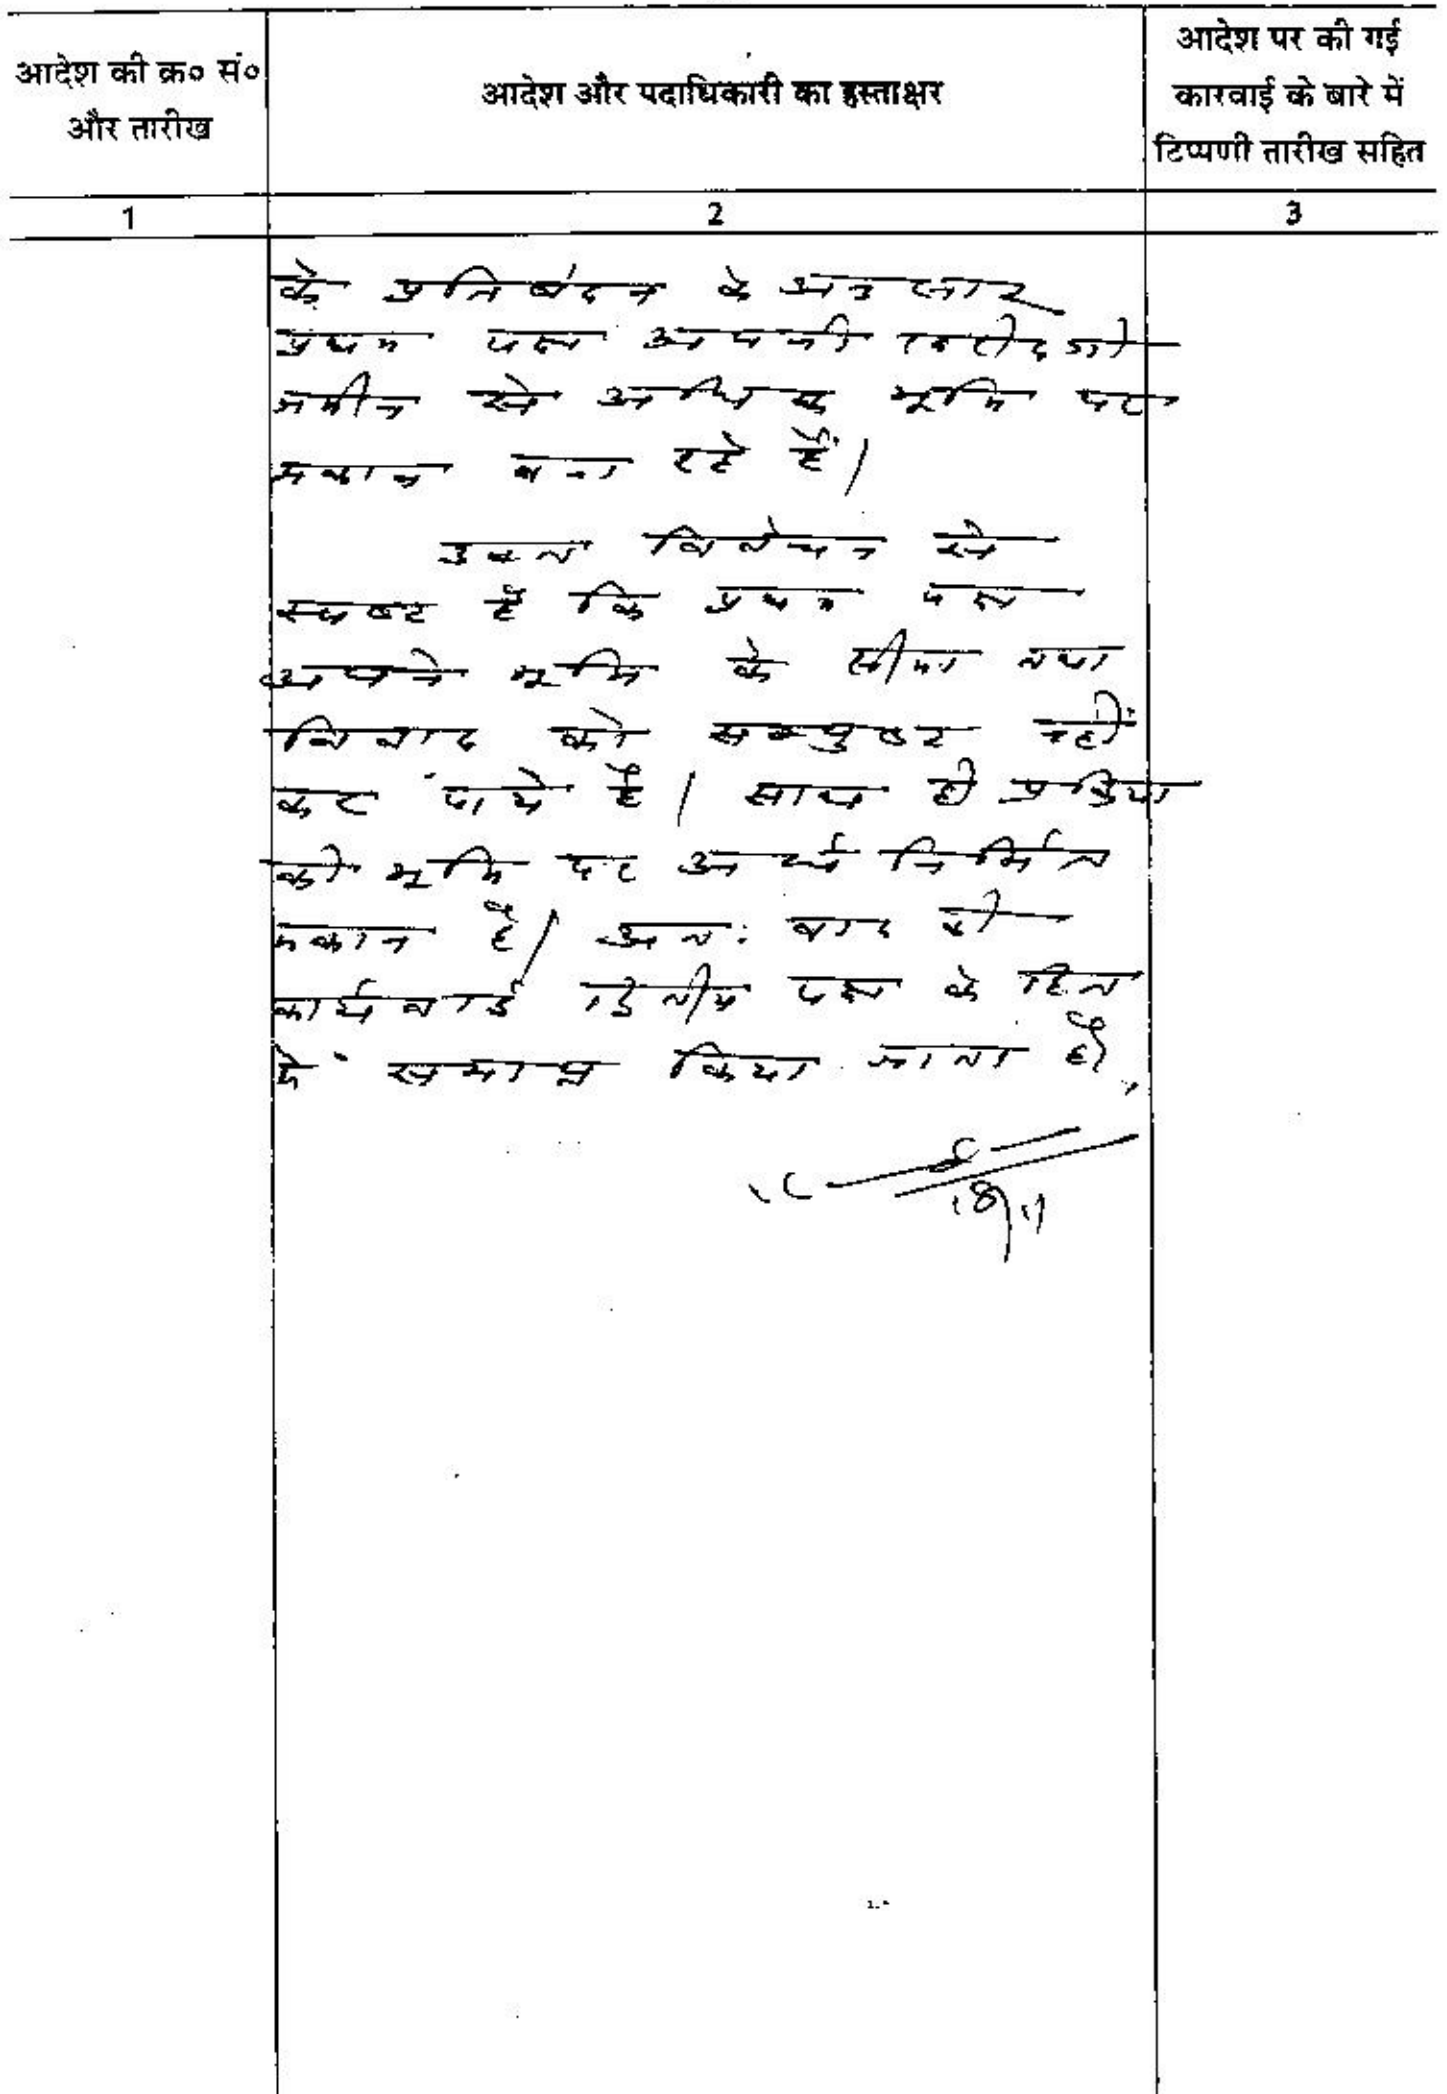 आदेश की क्र० सं०
और तारीख
आदेश और पदाधिकारी का हस्ताक्षर
आदेश पर की गई
कारवाई के बारे में
टिप्पणी तारीख सहित
1
2
3
के प्रतिबेदन के अनुसार
प्रथम पक्ष अपनी खरीदगी
जमीन से अधिक भूमि पर
मकान बना रहे हैं।
उक्त विवेचन से
स्पष्ट है कि प्रथम पक्ष
अपने भूमि के सीमा तथा
विवाद को सम्पुष्ट नहीं
कर पाये है। साथ ही
की भूमि पर अर्ध निर्मित
मकान है। अतः वाद की
कार्यवाई द्वितीय पक्ष के हित
में समाप्त किया जाता है,